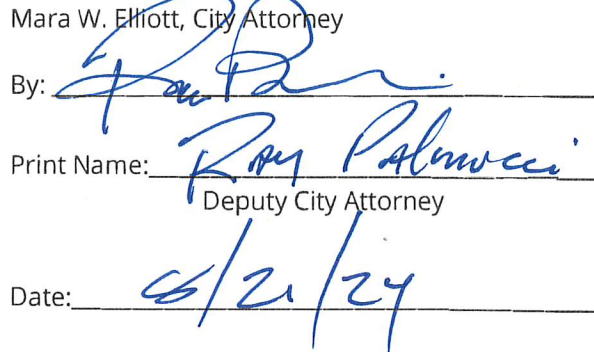 Mara W. Elliott, City Attorney
By:
Print Name: Ray Palmucci
Deputy City Attorney
Date: 6/21/24